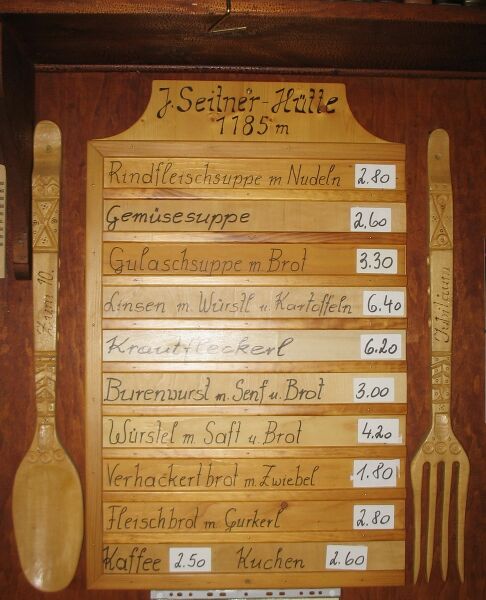 J. Seitner-Hütte
1185 m
Rindfleischsuppe m Nudeln 2.80
Gemüsesuppe 2.60
Gulaschsuppe m. Brot 3.30
Linsen m Würstl u. Kartoffeln 6.40
Krautfleckerl 6.20
Burenwurst m. Senf u. Brot 3.00
Würstel m Saft u. Brot 4.20
Verhackertbrot m. Zwiebel 1.80
Fleischbrot m Gurkerl 2.80
Kaffee 2.50 Kuchen 2.60
Zum 10.